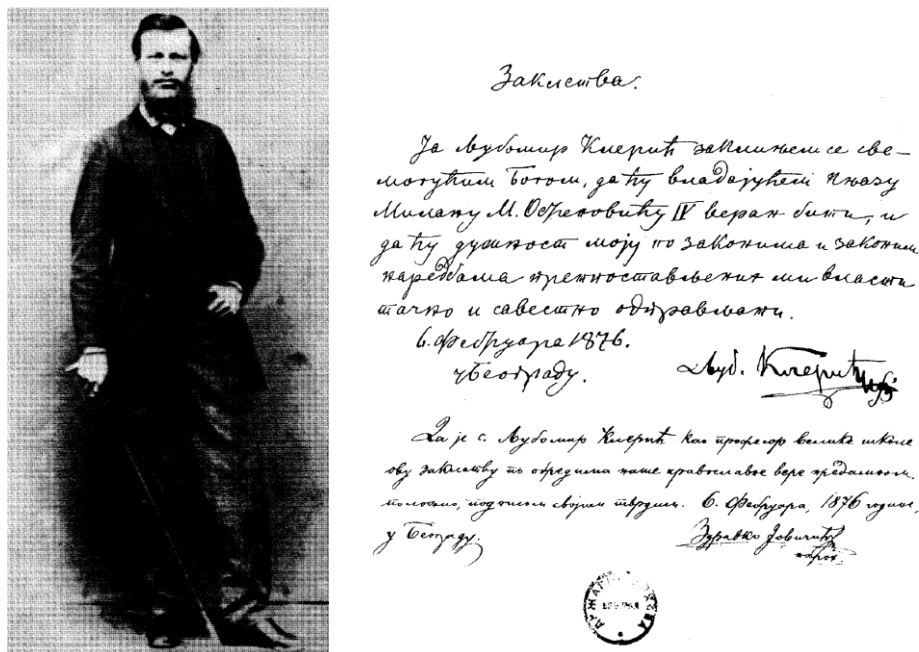 Заклетва.
Ја Љубомир Клерић заклињем се све-
могућим Богом, да ћу владајућем Књазу
Милану М. Обреновићу IV веран бити, и
да ћу дужност моју по законима и законим
наредбама претпостављених ми власти
тачно и савестно одправљати.
6. Фебруара 1876.
у Београду.
Љуб. Клерић
Да је г. Љубомир Клерић као професор велике школе
ову заклетву по обредима наше православне вере предамном
положио, подписом својим тврдим. 6. Фебруара, 1876 године,
у Београду.
Здравко Јовичић
парох